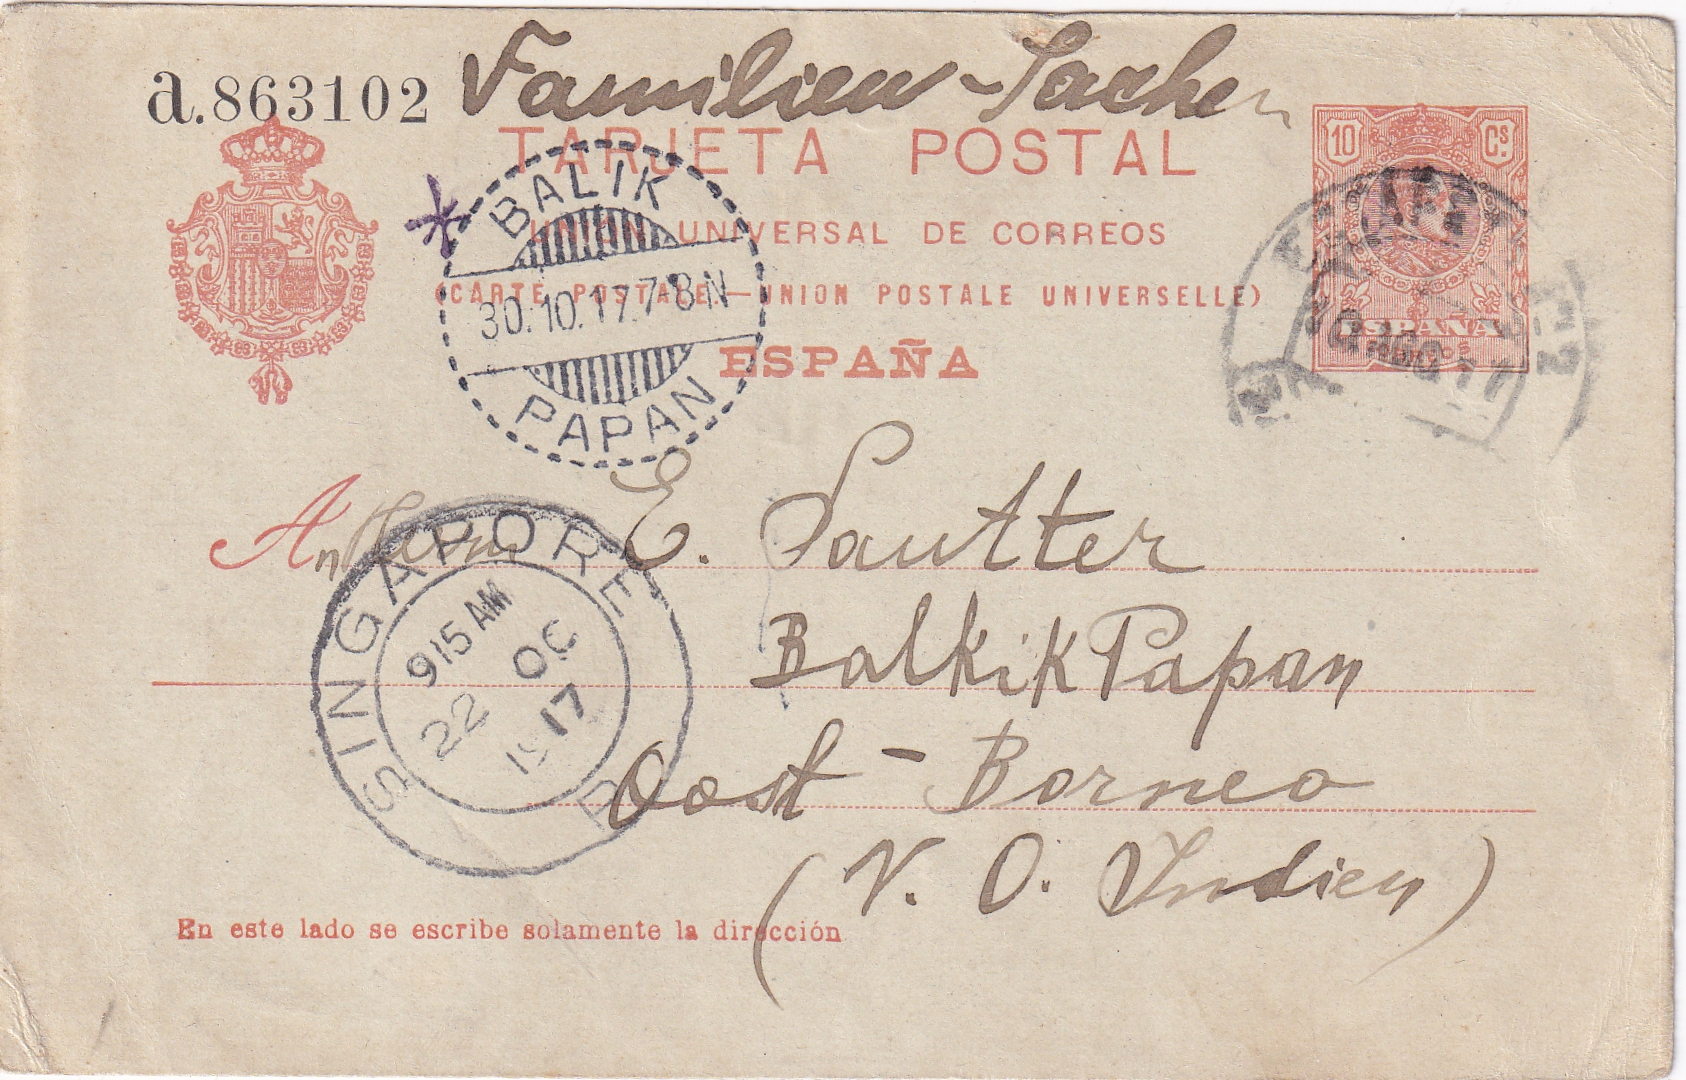 Familien-Sachen
a.863102
TARJETA POSTAL
UNIÓN UNIVERSAL DE CORREOS
(CARTE POSTALE.—UNION POSTALE UNIVERSELLE)
ESPAÑA
10 Cs
ESPAÑA
BALIK
30.10.17.7-8N
PAPAN
An Herrn E. Sautter
SINGAPORE
915 AM
22 OC
1917
BalkikPapan
Oost-Borneo
(N. O. Indien)
En este lado se escribe solamente la dirección